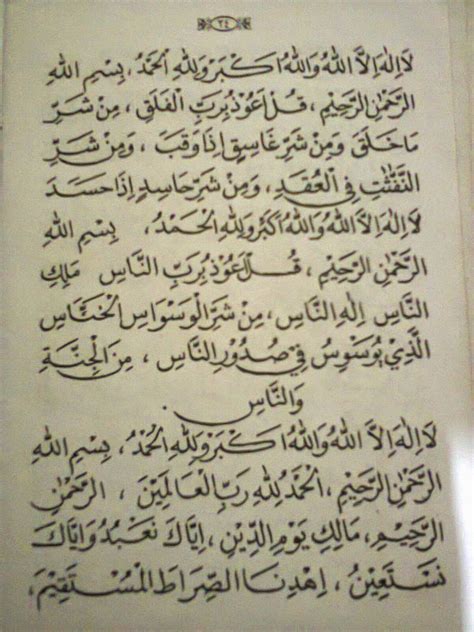 ٢٤
لَا اِلٰهَ اِلَّا اللهُ وَاللهُ اَكْبَرُ وَلِلّٰهِ الْحَمْدُ ، بِسْمِ اللهِ
الرَّحْمٰنِ الرَّحِيْمِ ، قُلْ اَعُوْذُ بِرَبِّ الْفَلَقِ ، مِنْ شَرِّ
مَا خَلَقَ وَمِنْ شَرِّ غَاسِقٍ اِذَا وَقَبَ ، وَمِنْ شَرِّ
النَّفّٰثٰتِ فِي الْعُقَدِ ، وَمِنْ شَرِّ حَاسِدٍ اِذَا حَسَدَ
لَا اِلٰهَ اِلَّا اللهُ وَاللهُ اَكْبَرُ وَلِلّٰهِ الْحَمْدُ ، بِسْمِ اللهِ
الرَّحْمٰنِ الرَّحِيْمِ ، قُلْ اَعُوْذُ بِرَبِّ النَّاسِ مَلِكِ
النَّاسِ اِلٰهِ النَّاسِ ، مِنْ شَرِّ الْوَسْوَاسِ الْخَنَّاسِ
الَّذِيْ يُوَسْوِسُ فِيْ صُدُوْرِ النَّاسِ ، مِنَ الْجِنَّةِ
وَالنَّاسِ .
لَا اِلٰهَ اِلَّا اللهُ وَاللهُ اَكْبَرُ وَلِلّٰهِ الْحَمْدُ ، بِسْمِ اللهِ
الرَّحْمٰنِ الرَّحِيْمِ ، اَلْحَمْدُ لِلّٰهِ رَبِّ الْعَالَمِيْنَ ، الرَّحْمٰنِ
الرَّحِيْمِ ، مَالِكِ يَوْمِ الدِّيْنِ ، اِيَّاكَ نَعْبُدُ وَاِيَّاكَ
نَسْتَعِيْنُ ، اِهْدِنَا الصِّرَاطَ الْمُسْتَقِيْمَ ،